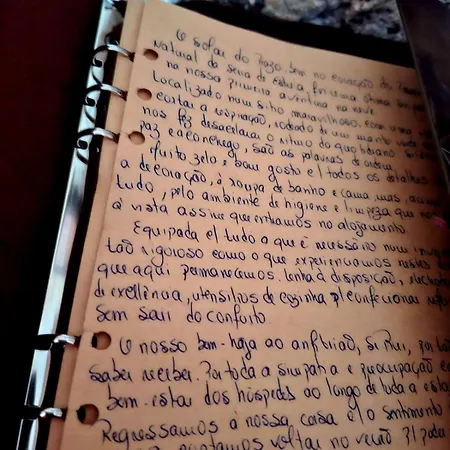 O Solar do Prazo, bem no coração do Parque
Natural da Serra da Estrela, foi uma ótima
na nossa primeira aventura na neve.
Localizado num sítio maravilhoso, com uma
cortar a respiração, rodeado de um manto verde
nos fez desacelerar o ritmo do quotidiano.
paz e aconchego, são as palavras de ordem.
Muito zelo e bom gosto e/ todos os detalhes
a decoração, à roupa de banho e cama, mas, acima
tudo, pelo ambiente de higiene e limpeza que nos
à vista assim que entramos no alojamento.
Equipada c/ tudo o que é necessário num inverno
tão rigoroso como o que experienciamos nestes
que aqui permanecemos. Lenha à disposição,
d'excellência, utensílios de cozinha p/ confecionar
sem sair do conforto.
O nosso bem-haja ao anfitrião, Sr Rui, por tão
saber receber. Por toda a simpatia e preocupação
bem-estar dos hóspedes ao longo de tuda a
Regressamos à nossa casa c/ o sentimento
voltar no verão p/ poder